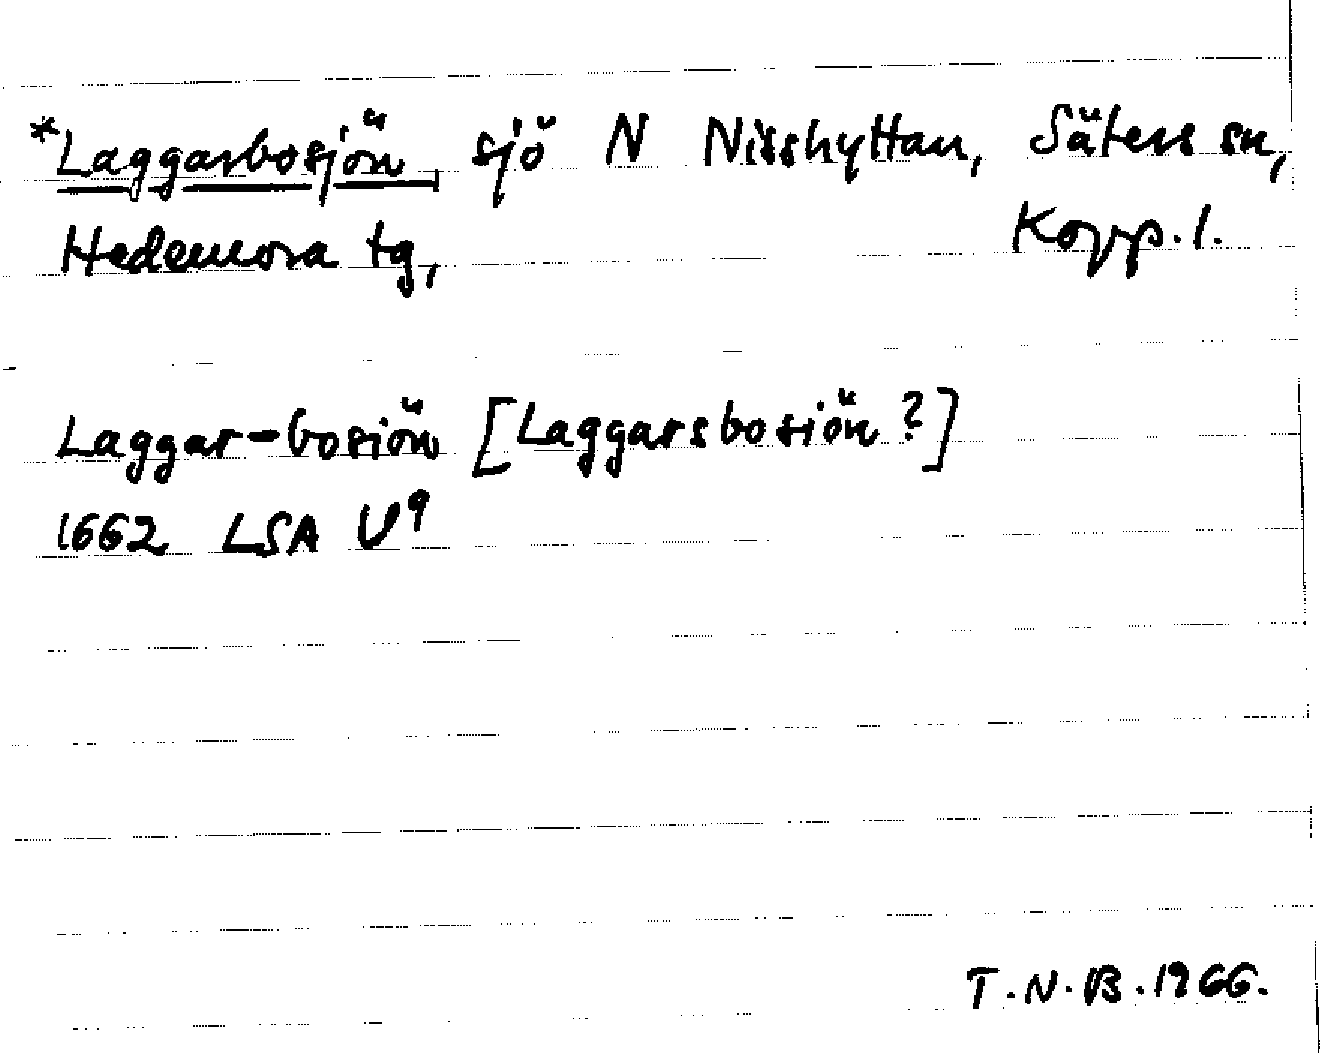 *Laggarbosjön, sjö N Nisshyttan, Säters sn,
Hedemora tg, Kopp. l.
Laggar-bosiön [Laggarsbosiön?]
1662 LSA U⁹
T.N.B. 1966.